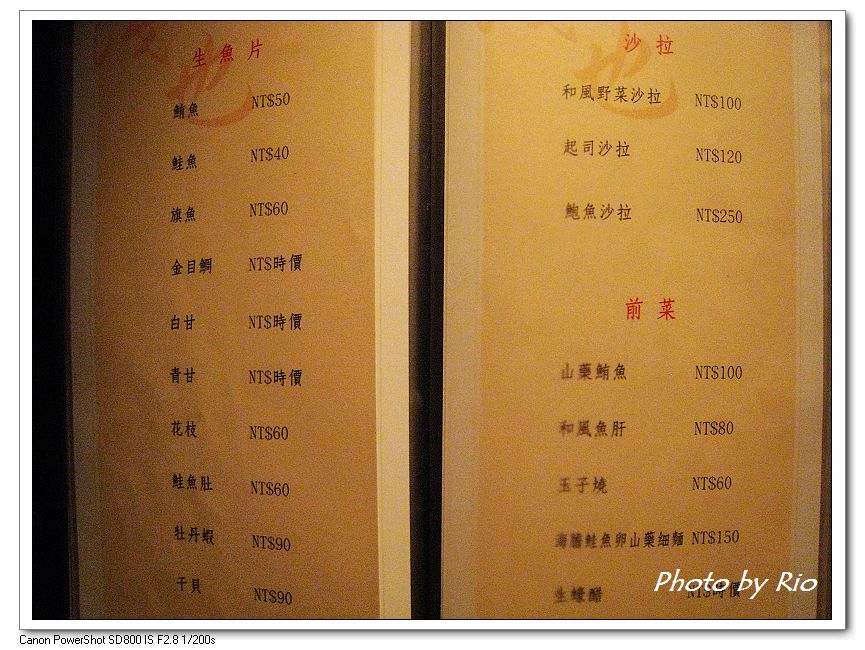 生魚片
鮪魚 NT$50
鮭魚 NT$40
旗魚 NT$60
金目鯛 NT$時價
白甘 NT$時價
青甘 NT$時價
花枝 NT$60
鮭魚肚 NT$60
牡丹蝦 NT$90
干貝 NT$90
沙拉
和風野菜沙拉 NT$100
起司沙拉 NT$120
鮑魚沙拉 NT$250
前菜
山藥鮪魚 NT$100
和風魚肝 NT$80
玉子燒 NT$60
海膽鮭魚卵山藥細麵 NT$150
生蠔醋 NT$時價
Photo by Rio
Canon PowerShot SD800 IS F2.8 1/200s